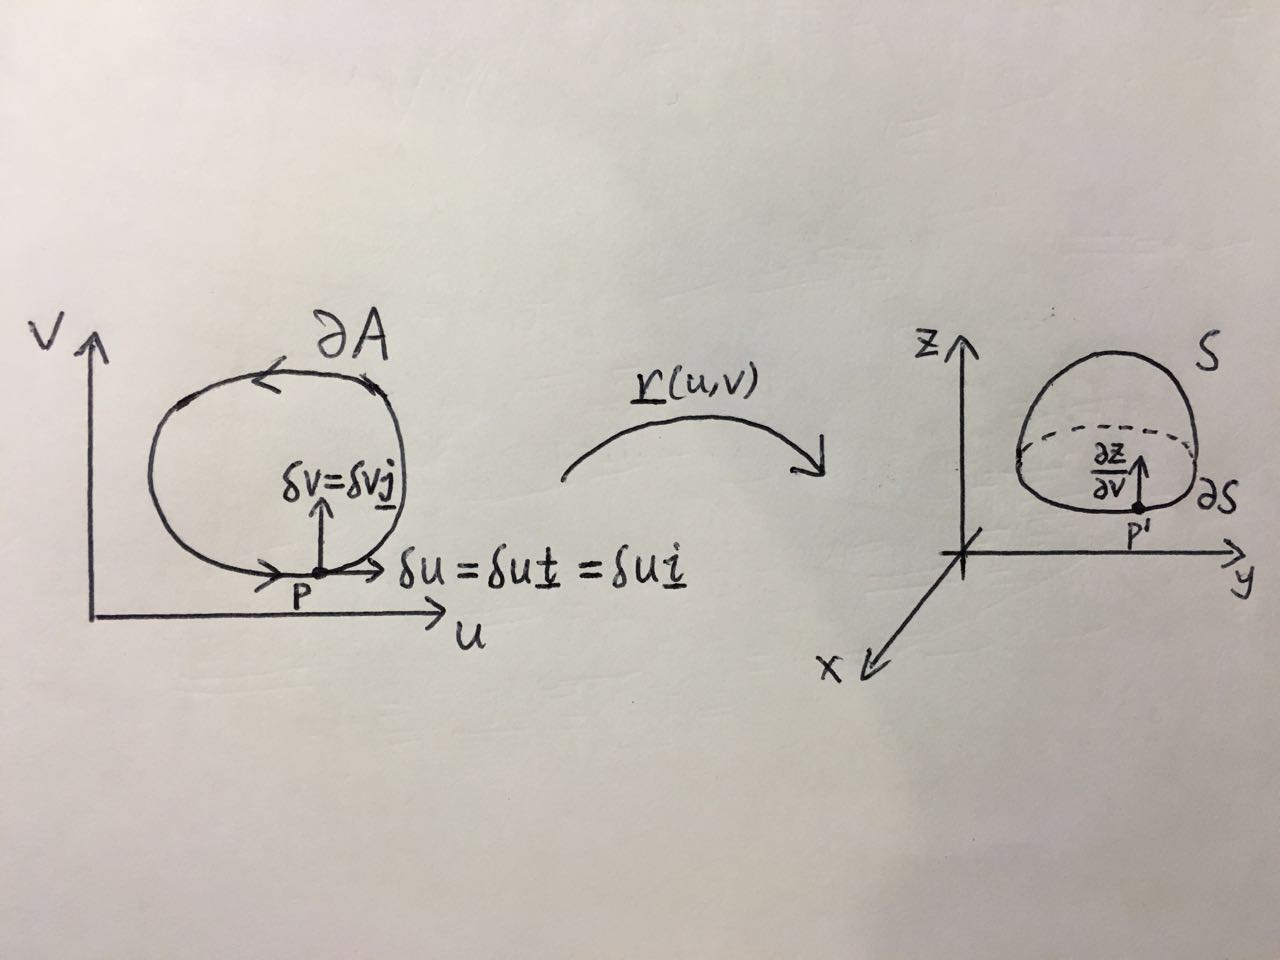 v
∂A
δv=δvj̲
δu = δut̲ = δui̲
P
u
r̲(u,v)
z
S
∂z/∂v
∂S
P'
y
x